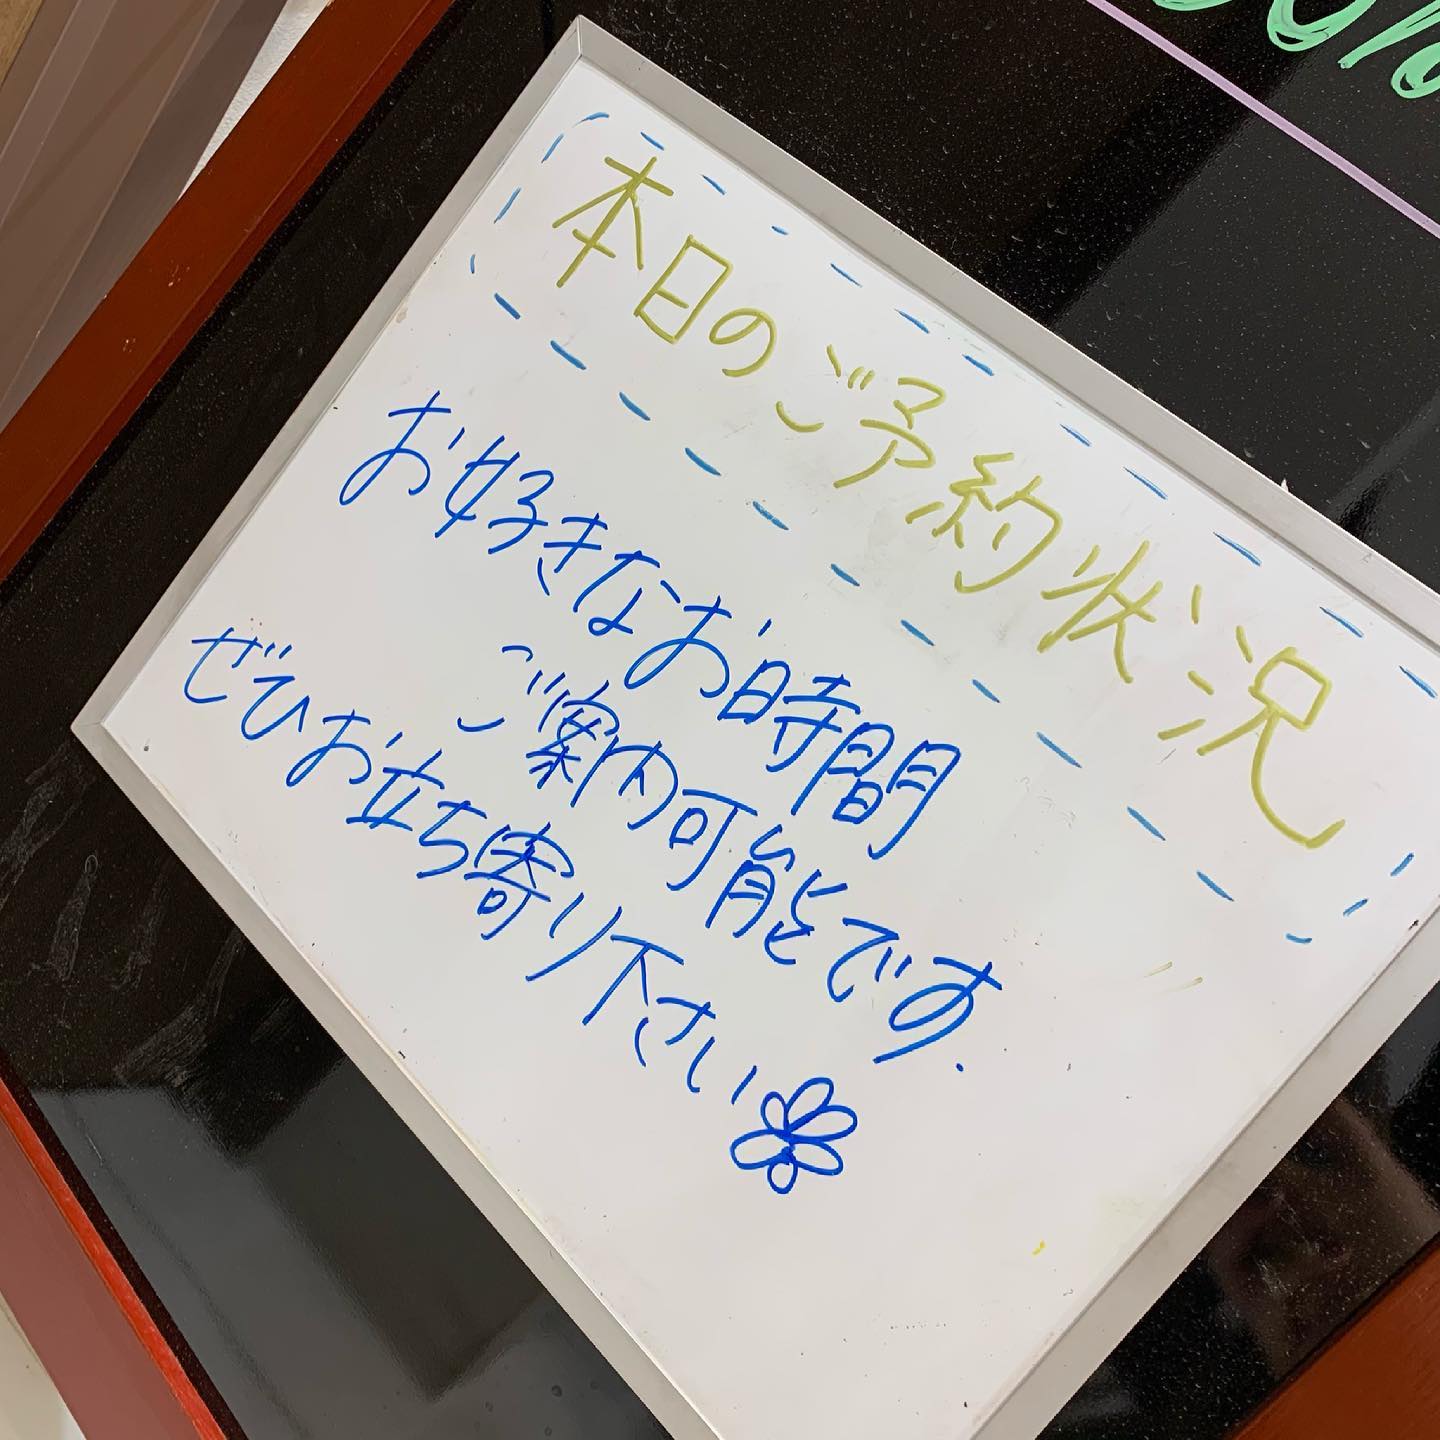 本日のご予約状況
お好きなお時間
ご案内可能です.
ぜひお立ち寄り下さい